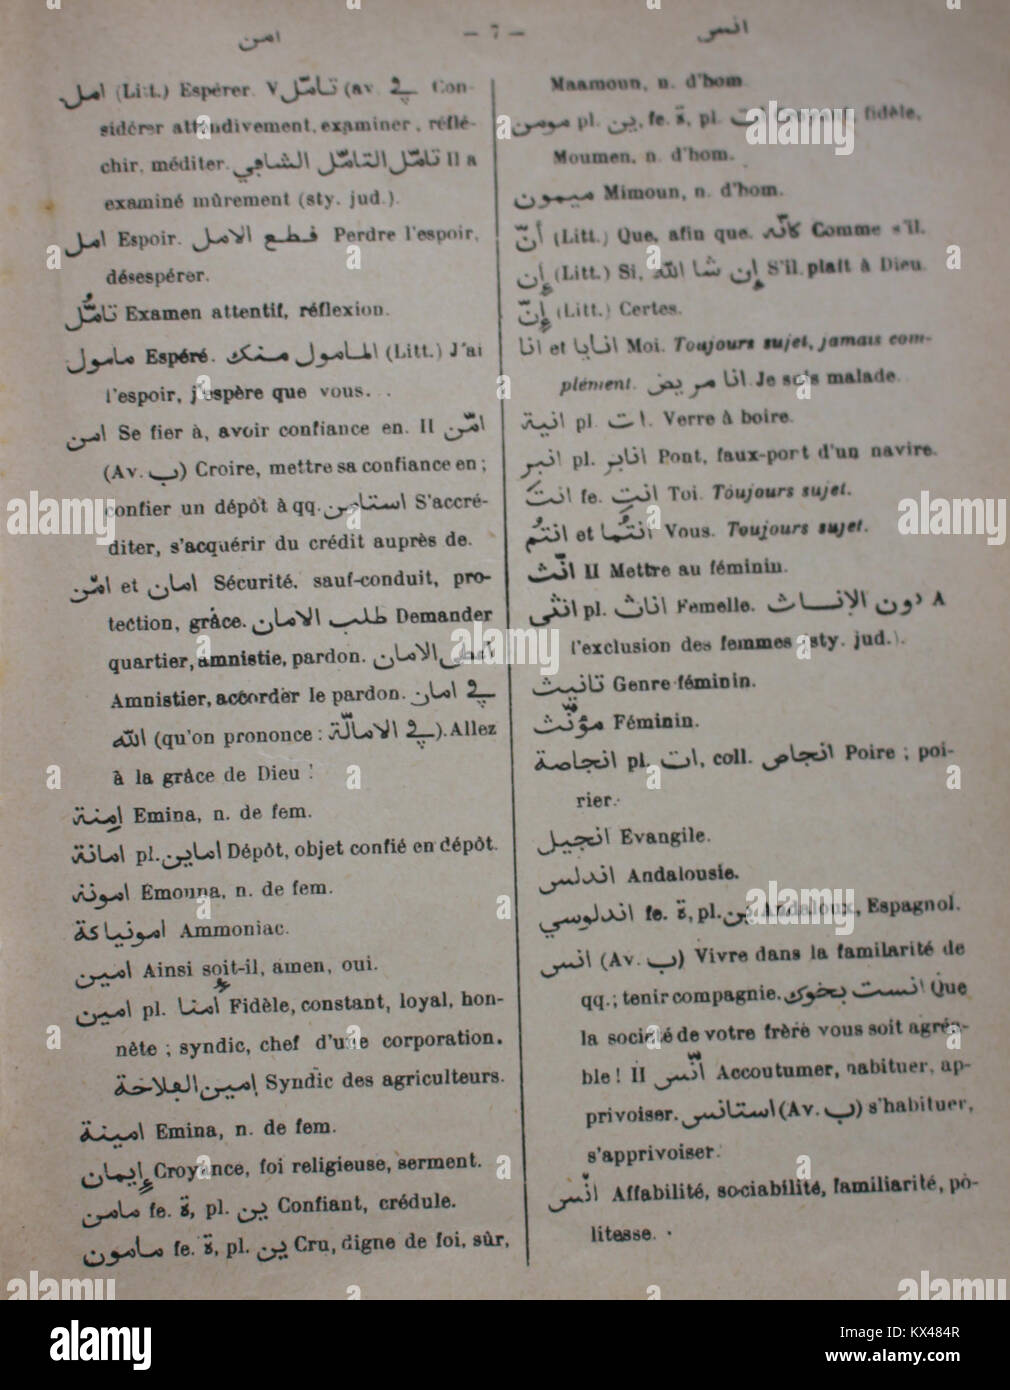 امن — 7 — انس
امل (Litt.) Espérer. V تامّل (av. في Con-
sidérer attendivement, examiner, réflé-
chir, méditer. تامّل التامّل الشافي Il a
examiné mûrement (sty. jud.).
امل Espoir. قطع الامل Perdre l'espoir,
désespérer.
تامُّل Examen attentif, réflexion.
مامول Espéré. المامول منك (Litt.) J'ai
l'espoir, j'espère que vous...
امن Se fier à, avoir confiance en. II امّن
(Av. ب) Croire, mettre sa confiance en ;
confier un dépôt à qq. استامن S'accré-
diter, s'acquérir du crédit auprès de.
امّن et امان Sécurité, sauf-conduit, pro-
tection, grâce. طلب الامان Demander
quartier, amnistie, pardon. اعطى الامان
Amnistier, accorder le pardon. في امان
الله (qu'on prononce : في الامالّة). Allez
à la grâce de Dieu !
امِنة Emina, n. de fem.
امانة pl. اماين Dépôt, objet confié en dépôt.
امونة Emouna, n. de fem.
امونياكة Ammoniac.
امين Ainsi soit-il, amen, oui.
امين pl. أمنا Fidèle, constant, loyal, hon-
nête ; syndic, chef d'une corporation.
امين الفلاحة Syndic des agriculteurs.
امينة Emina, n. de fem.
إيمان Croyance, foi religieuse, serment.
مامن fe. ة, pl. ين Confiant, crédule.
مامون fe. ة, pl. ين Cru, digne de foi, sûr,
Maamoun, n. d'hom
مومن pl. ين, fe. ة, pl. ات fidèle,
Moumen, n. d'hom.
ميمون Mimoun, n. d'hom.
أنّ (Litt.) Que, afin que. كانّه Comme s'il.
إن (Litt.) Si, إن شا الله S'il plaît à Dieu.
إنّ (Litt.) Certes.
انا et انايا Moi. Toujours sujet, jamais com-
plément. انا مريض Je suis malade.
انية pl. ات. Verre à boire.
انبر pl. انابر Pont, faux-port d'un navire.
انتَ fe. انتِ Toi. Toujours sujet.
انتُم et انتُما Vous. Toujours sujet.
انّث II Mettre au féminin.
انثى pl. اناث Femelle. دون الإناث A
l'exclusion des femmes (sty. jud.).
تانيث Genre féminin.
مؤنّث Féminin.
انجاصة pl. ات, coll. انجاص Poire ; poi-
rier.
انجيل Evangile.
اندلس Andalousie.
اندلوسي fe. ة, pl. ين Andaloux, Espagnol.
انس (Av. ب) Vivre dans la familarité de
qq.; tenir compagnie. انست بخوك Que
la société de votre frère vous soit agréa-
ble ! II أنّس Accoutumer, habituer, ap-
privoiser. استانس (Av. ب) s'habituer,
s'apprivoiser.
انّس Affabilité, sociabilité, familiarité, po-
litesse.
alamy stock photo
KX484R
www.alamy.com